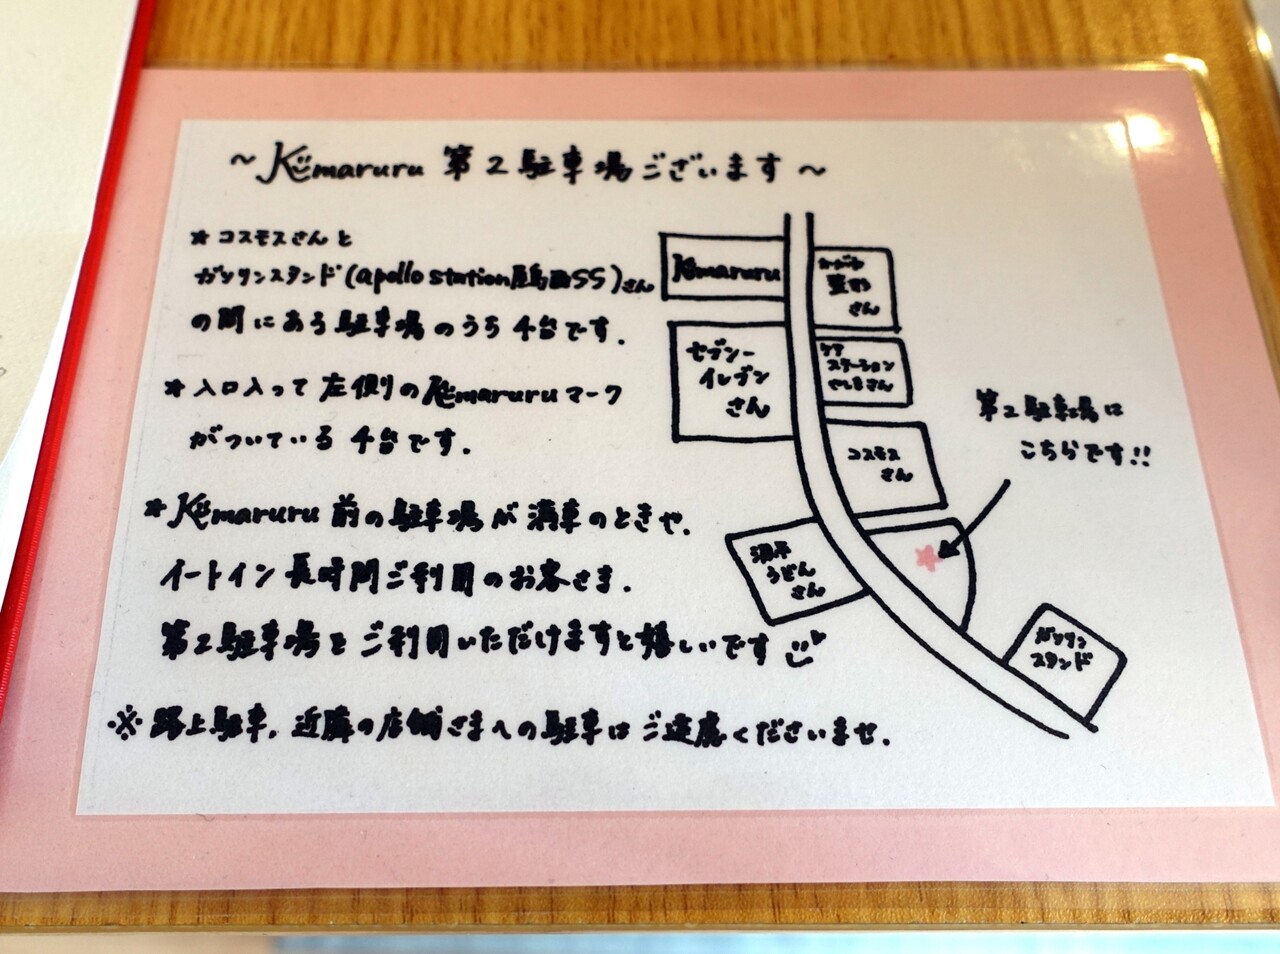 ～Kimaruru 第2駐車場ございます～
★コスモスさんと
ガソリンスタンド(apollo station屋島西SS)さん
の間にある駐車場のうち4台です.
★入口入って左側のKimaruruマーク
がついている4台です.
★Kimaruru前の駐車場が満車のときや,
イートイン長時間ご利用のお客さま.
第2駐車場をご利用いただけますと嬉しいです
※路上駐車,近隣の店舗さまへの駐車はご遠慮くださいませ.
Kimaruru
さん
セブンー
イレブン
さん
ケア
ステーション
やしまさん
コスモス
さん
第2駐車場は
こちらです!!
うどん
さん
ガソリン
スタンド